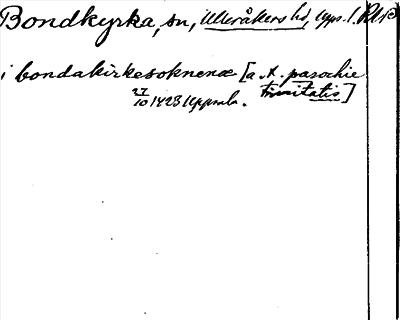 Bondkyrka, sn, Ulleråkers hd, Upps. l. RAp
i bondakirkesoknenæ [a t. parochie
trinitatis]
27/10 1423 Uppsala.